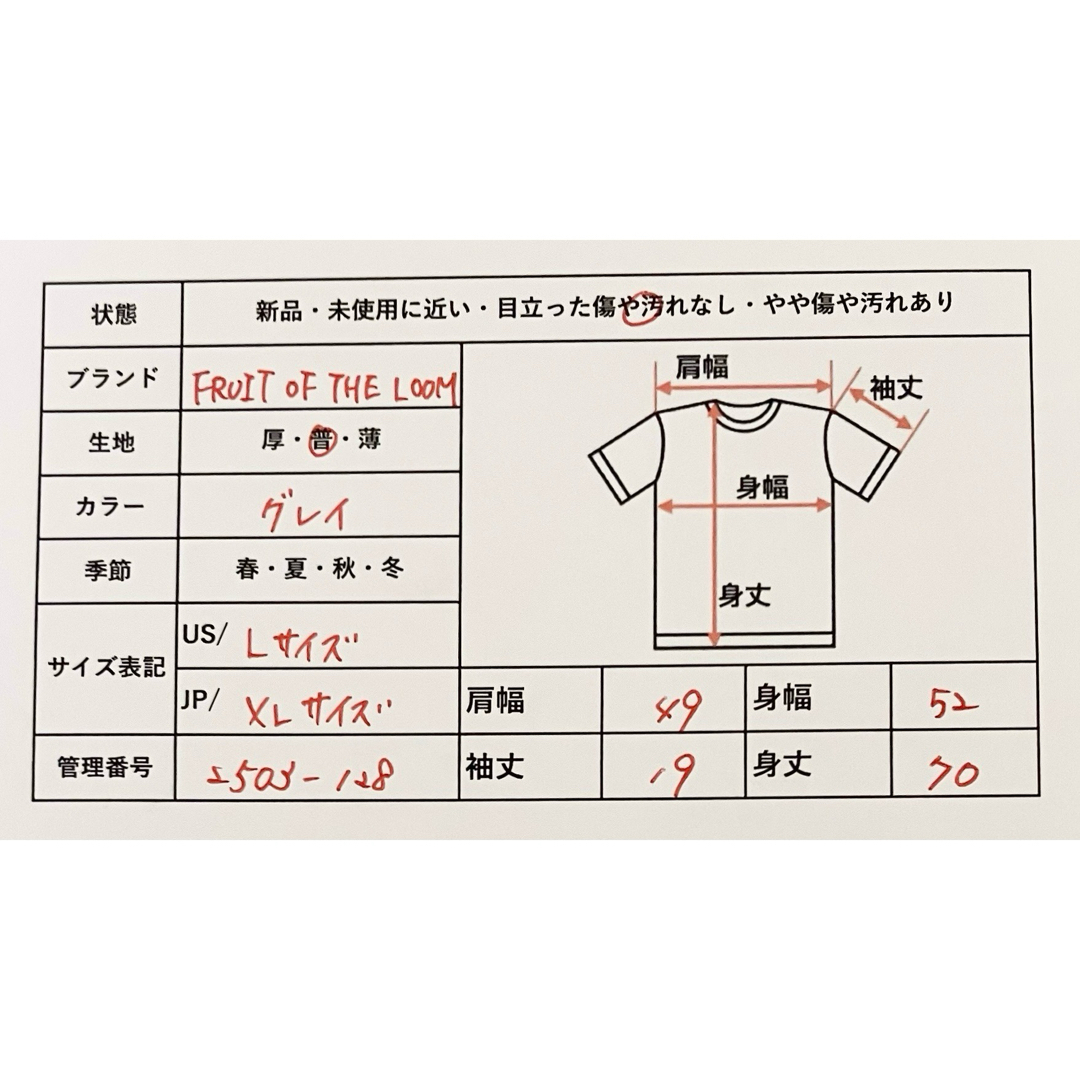 状態 新品・未使用に近い・目立った傷や汚れなし・やや傷や汚れあり
ブランド FRUIT OF THE LOOM
生地 厚・普・薄
カラー グレイ
季節 春・夏・秋・冬
サイズ表記
US/ Lサイズ
JP/ XLサイズ
管理番号 2503-128
肩幅
袖丈
身幅
身丈
肩幅 49 身幅 52
袖丈 19 身丈 70